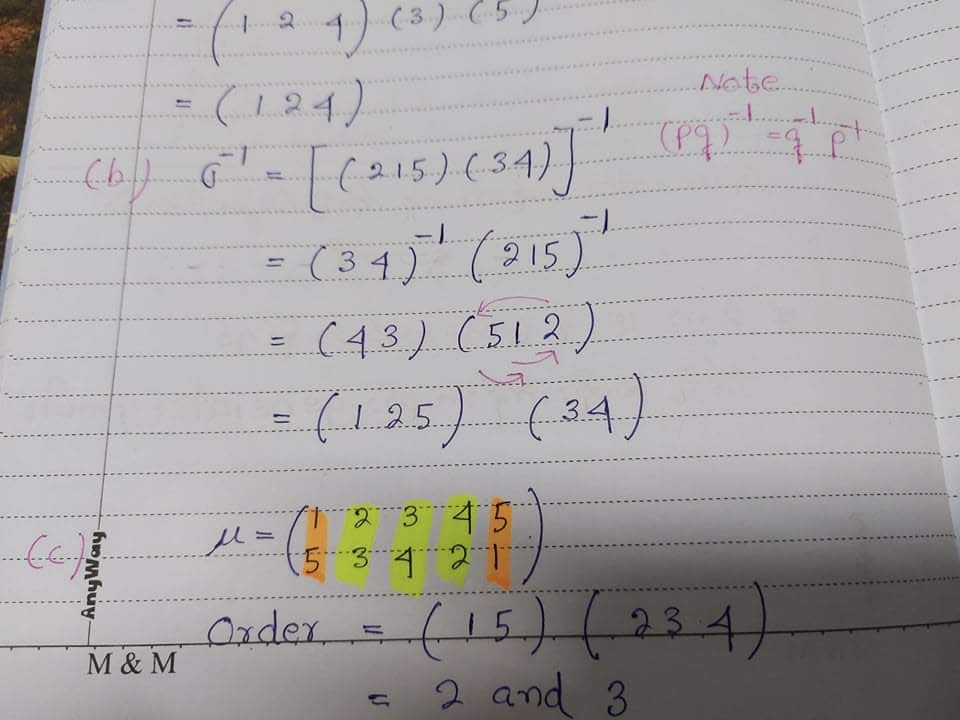 = (1 2 4) (3) (5)
= (1 2 4)
Note
(pq)⁻¹ = q⁻¹ p⁻¹
(b) σ⁻¹ = [(215)(34)]⁻¹
= (34)⁻¹ (215)⁻¹
= (43) (512)
= (125) (34)
(c) μ = (1 2 3 4 5
5 3 4 2 1)
AnyWay
Order = (15) (234)
M & M
= 2 and 3